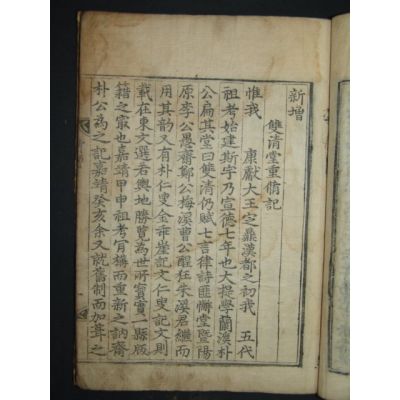 新增
雙清堂重脩記
惟我 康獻大王定鼎漢都之初我 五代
祖考始建斯宇乃宣德七年也大提學蘭溪朴
公扁其堂曰雙清仍賦七言律詩匪懈堂暨陽
原李公愚齋鄭公梅溪曹公醒狂朱溪君繼而
用其韵又有朴仁叟金乖崖記文仁叟記文則
載在東文選君輿地勝覽為世所寶實一縣版
籍之最也嘉靖甲申祖考肯搆而重新之訥齋
朴公為之記嘉靖癸亥余又就舊制而加葺之